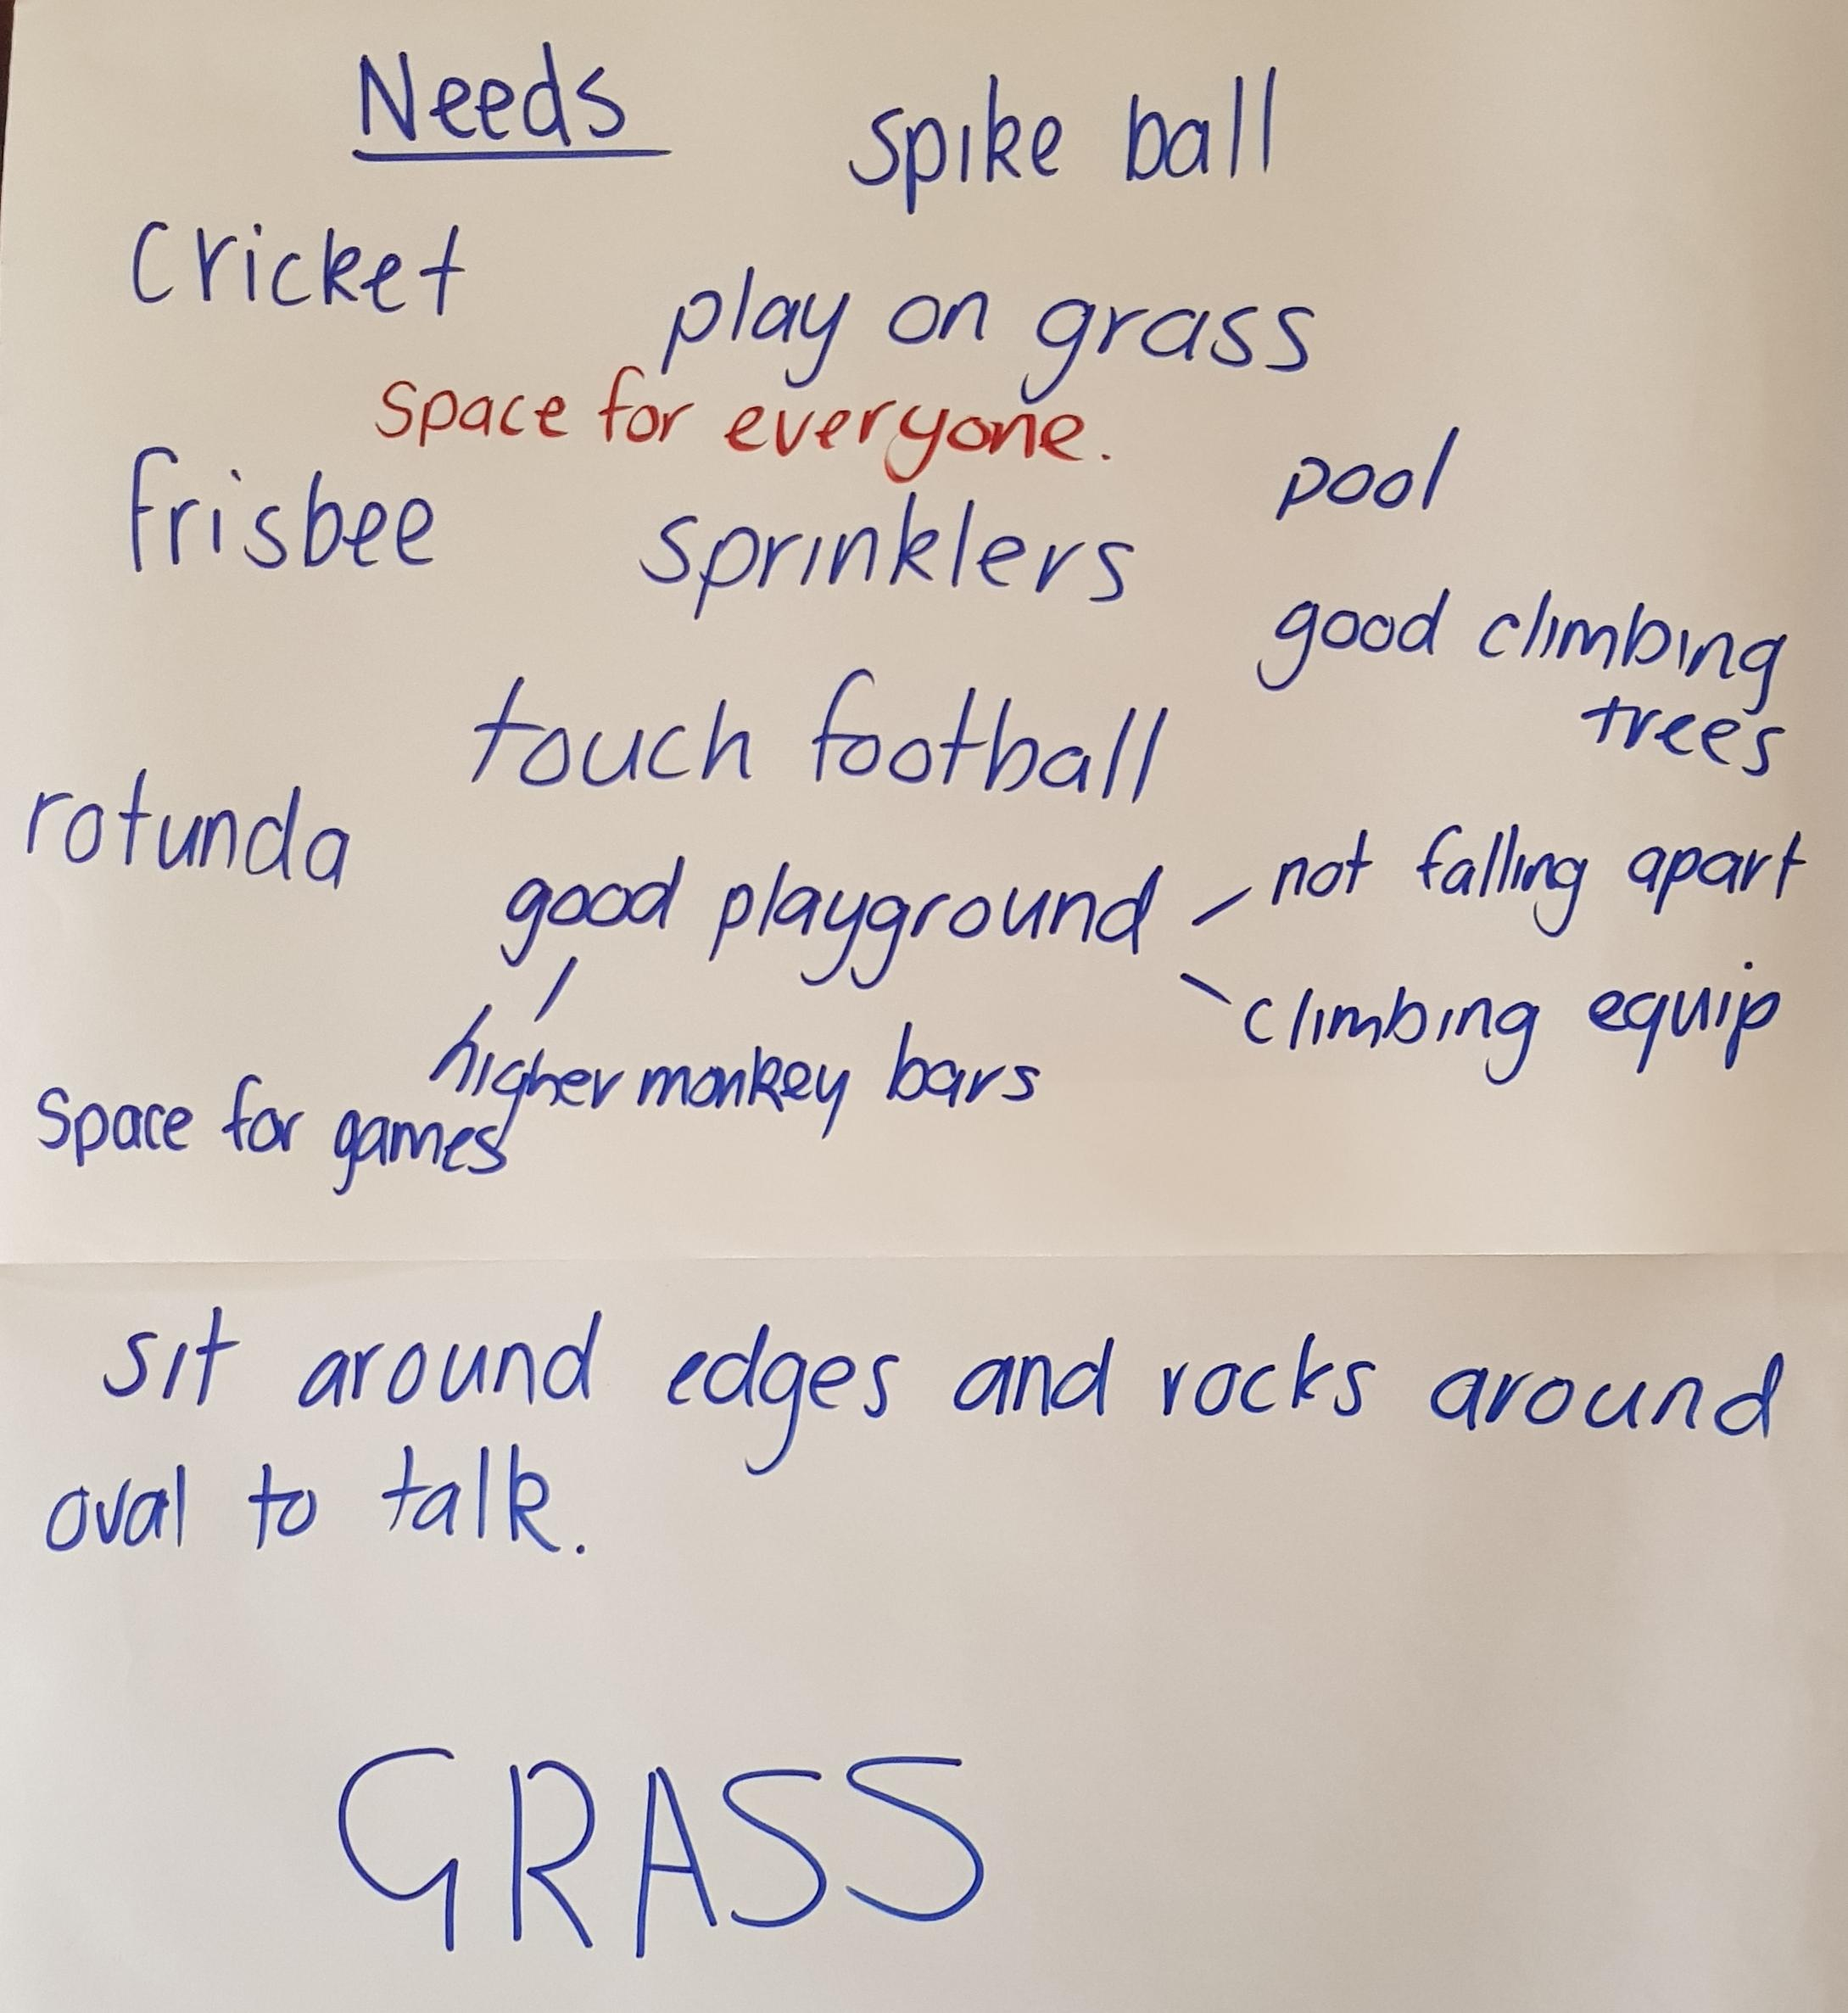 Needs
spike ball
Cricket
play on grass
Space for everyone.
frisbee
sprinklers
pool
good climbing
trees
touch football
rotunda
good playground
not falling apart
climbing equip
higher monkey bars
Space for games
sit around edges and rocks around
oval to talk.
GRASS